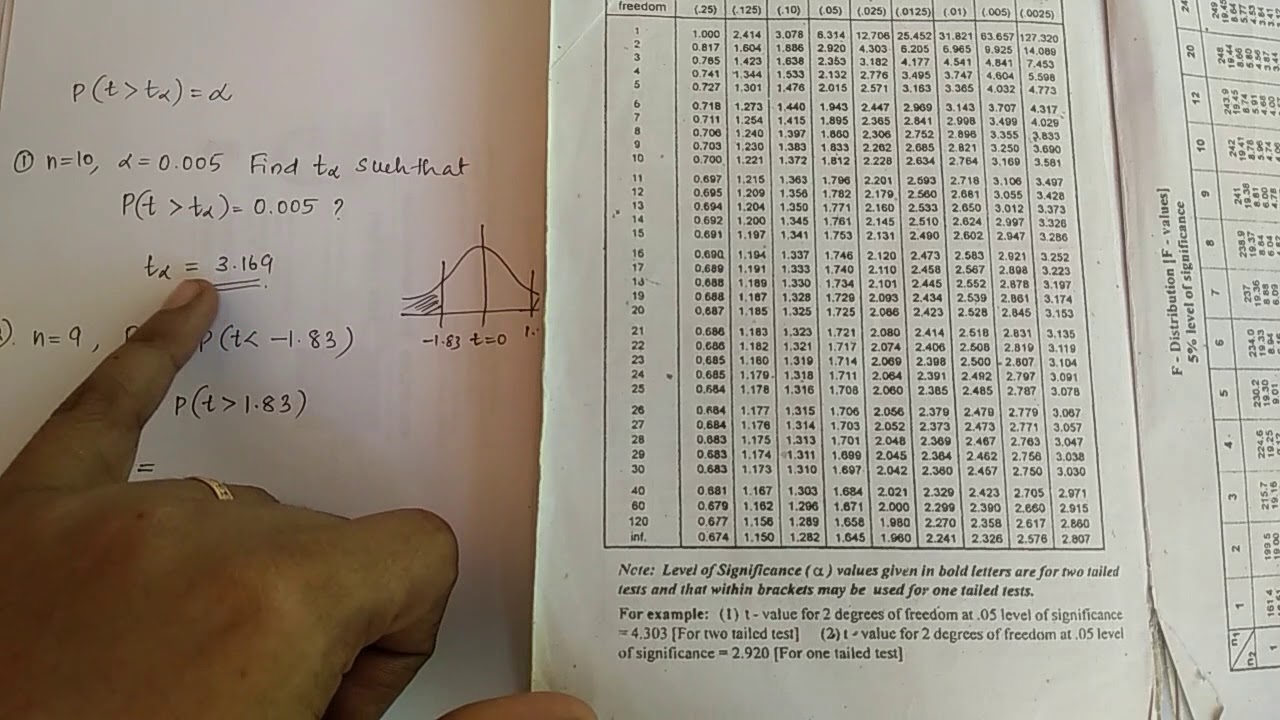 P(t > tα) = α
① n=10, α = 0.005 Find tα such that
P(t > tα) = 0.005 ?
tα = 3.169
n = 9, P(t < -1.83)
-1.83 t=0 1.
P(t > 1.83)
=
freedom (.25) (.125) (.10) (.05) (.025) (.0125) (.01) (.005) (.0025)
1 1.000 2.414 3.078 6.314 12.706 25.452 31.821 63.657 127.320
2 0.817 1.604 1.886 2.920 4.303 6.205 6.965 9.925 14.089
3 0.765 1.423 1.638 2.353 3.182 4.177 4.541 5.841 7.453
4 0.741 1.344 1.533 2.132 2.776 3.495 3.747 4.604 5.598
5 0.727 1.301 1.476 2.015 2.571 3.163 3.365 4.032 4.773
6 0.718 1.273 1.440 1.943 2.447 2.969 3.143 3.707 4.317
7 0.711 1.254 1.415 1.895 2.365 2.841 2.998 3.499 4.029
8 0.706 1.240 1.397 1.860 2.306 2.752 2.896 3.355 3.833
9 0.703 1.230 1.383 1.833 2.262 2.685 2.821 3.250 3.690
10 0.700 1.221 1.372 1.812 2.228 2.634 2.764 3.169 3.581
11 0.697 1.215 1.363 1.796 2.201 2.593 2.718 3.106 3.497
12 0.695 1.209 1.356 1.782 2.179 2.560 2.681 3.055 3.428
13 0.694 1.204 1.350 1.771 2.160 2.533 2.650 3.012 3.373
14 0.692 1.200 1.345 1.761 2.145 2.510 2.624 2.997 3.326
15 0.691 1.197 1.341 1.753 2.131 2.490 2.602 2.947 3.286
16 0.690 1.194 1.337 1.746 2.120 2.473 2.583 2.921 3.252
17 0.689 1.191 1.333 1.740 2.110 2.458 2.567 2.898 3.223
18 0.688 1.189 1.330 1.734 2.101 2.445 2.552 2.878 3.197
19 0.688 1.187 1.328 1.729 2.093 2.434 2.539 2.861 3.174
20 0.687 1.185 1.325 1.725 2.086 2.423 2.528 2.845 3.153
21 0.686 1.183 1.323 1.721 2.080 2.414 2.518 2.831 3.135
22 0.686 1.182 1.321 1.717 2.074 2.406 2.508 2.819 3.119
23 0.685 1.180 1.319 1.714 2.069 2.398 2.500 2.807 3.104
24 0.685 1.179 1.318 1.711 2.064 2.391 2.492 2.797 3.091
25 0.684 1.178 1.316 1.708 2.060 2.385 2.485 2.787 3.078
26 0.684 1.177 1.315 1.706 2.056 2.379 2.479 2.779 3.067
27 0.684 1.176 1.314 1.703 2.052 2.373 2.473 2.771 3.057
28 0.683 1.175 1.313 1.701 2.048 2.369 2.467 2.763 3.047
29 0.683 1.174 1.311 1.699 2.045 2.364 2.462 2.756 3.038
30 0.683 1.173 1.310 1.697 2.042 2.360 2.457 2.750 3.030
40 0.681 1.167 1.303 1.684 2.021 2.329 2.423 2.705 2.971
60 0.679 1.162 1.296 1.671 2.000 2.299 2.390 2.660 2.915
120 0.677 1.156 1.289 1.658 1.980 2.270 2.358 2.617 2.860
inf. 0.674 1.150 1.282 1.645 1.960 2.241 2.326 2.576 2.807
Note: Level of Significance (α) values given in bold letters are for two tailed
tests and that within brackets may be used for one tailed tests.
For example: (1) t - value for 2 degrees of freedom at .05 level of significance
= 4.303 [For two tailed test] (2) t - value for 2 degrees of freedom at .05 level
of significance = 2.920 [For one tailed test]
F - Distribution [F - values]
5% level of significance
n1 1 2 3 4 5 6 7 8 9 10 12 20 24
n2
1 161.4 199.5 215.7 230.2 234.0 237 238.9 241 242 243.9 248 249